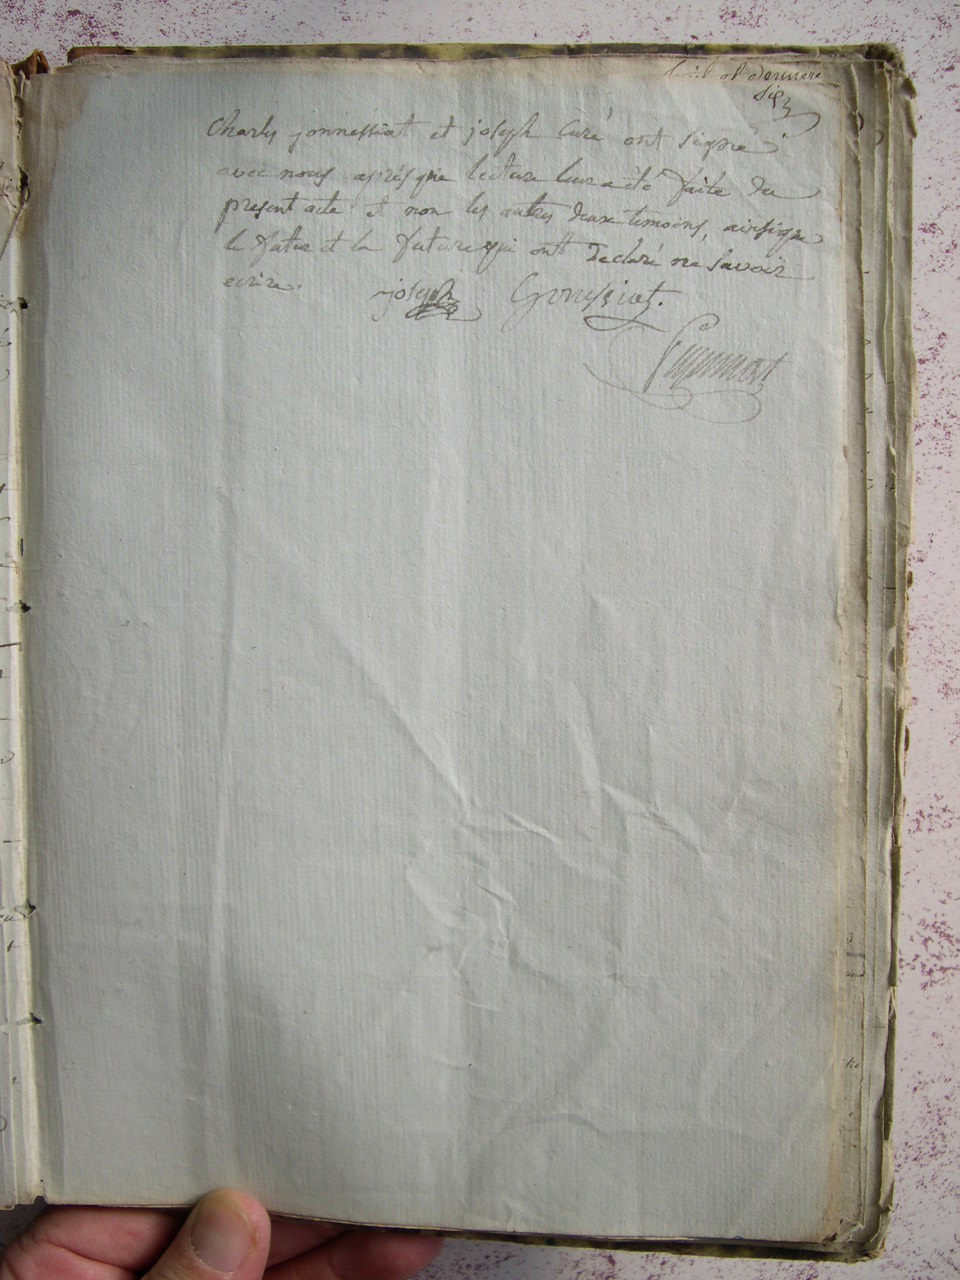 et derniere
Charles gonnessiat et joseph Curé ont signé
avec nous après que lecture leur a été faite du
present acte et non les autres deux temoins, ainsique
le futur et la future qui ont declaré ne savoir
ecrire.
joseph Gonessiat.